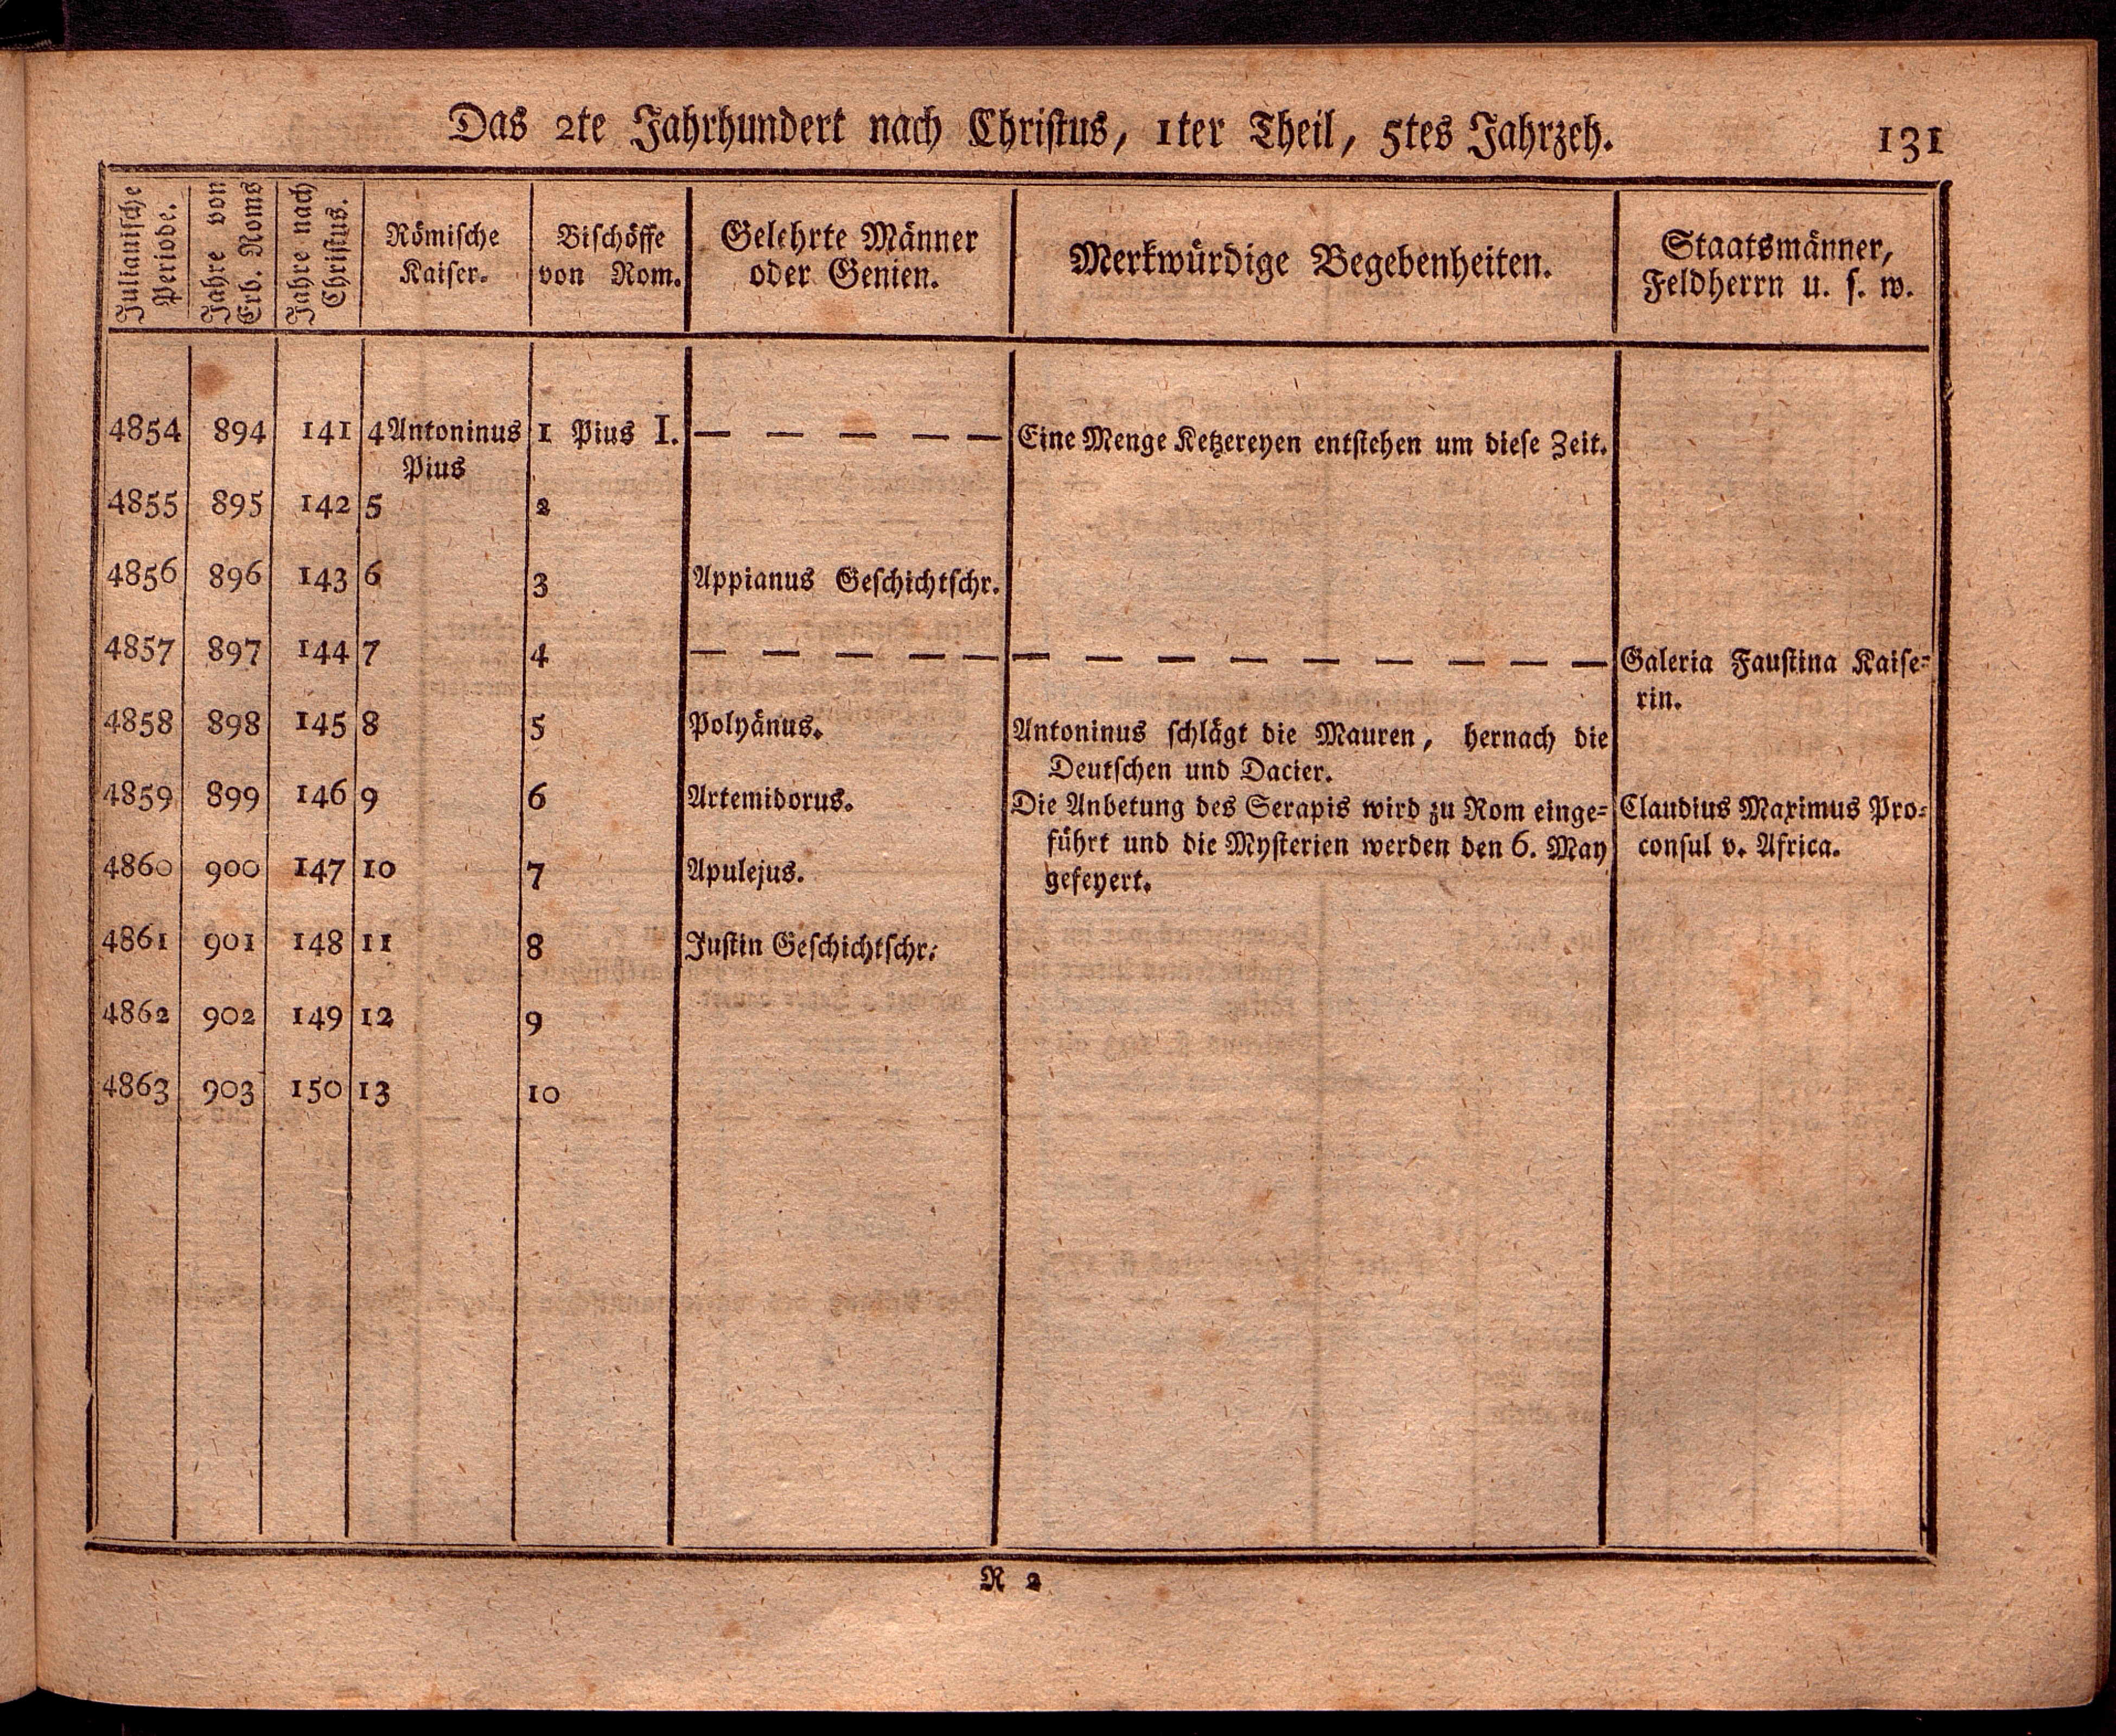 Das 2te Jahrhundert nach Christus, 1ter Theil, 5tes Jahrzeh. 131
Julianische
Periode.
Jahre von
Erb. Roms
Jahre nach
Christus.
Römische
Kaiser.
Bischöffe
von Rom.
Gelehrte Männer
oder Genien.
Merkwürdige Begebenheiten.
Staatsmänner,
Feldherrn u. s. w.
4854 894 141 4 Antoninus 1 Pius I. — — — — — Eine Menge Ketzereyen entstehen um diese Zeit.
Pius
4855 895 142 5 2
4856 896 143 6 3 Appianus Geschichtschr.
4857 897 144 7 4 — — — — — — — — — — — — — — Galeria Faustina Kaise-
rin.
4858 898 145 8 5 Polyänus. Antoninus schlägt die Mauren, hernach die
Deutschen und Dacier.
4859 899 146 9 6 Artemidorus. Die Anbetung des Serapis wird zu Rom einge- Claudius Maximus Pro-
führt und die Mysterien werden den 6. May consul v. Africa.
4860 900 147 10 7 Apulejus. gefeyert.
4861 901 148 11 8 Justin Geschichtschr.
4862 902 149 12 9
4863 903 150 13 10
R 2